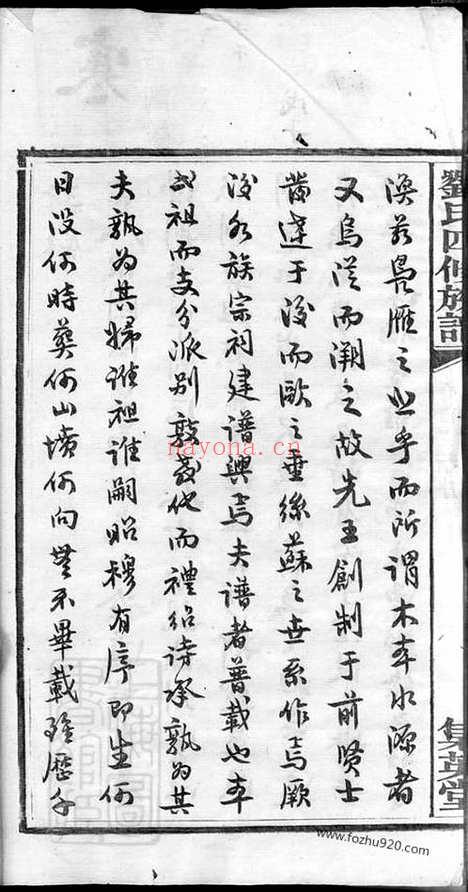 劉氏四修族譜
集英堂
渙若鳧雁之飛乎而所謂木本水源者
又烏從而溯之故先王創制于前賢士
啻達于後而歐之垂絲蘇之世系作焉厥
後各族宗祠建譜興焉夫譜者普載也本
祖而支分派别數世而禮紹詩承孰為其
夫孰為其婦誰祖誰嗣昭穆有序即生何
日没何時葬何山墳何向無不畢載雖歷千
nayona.cn
www.fozhu920.com